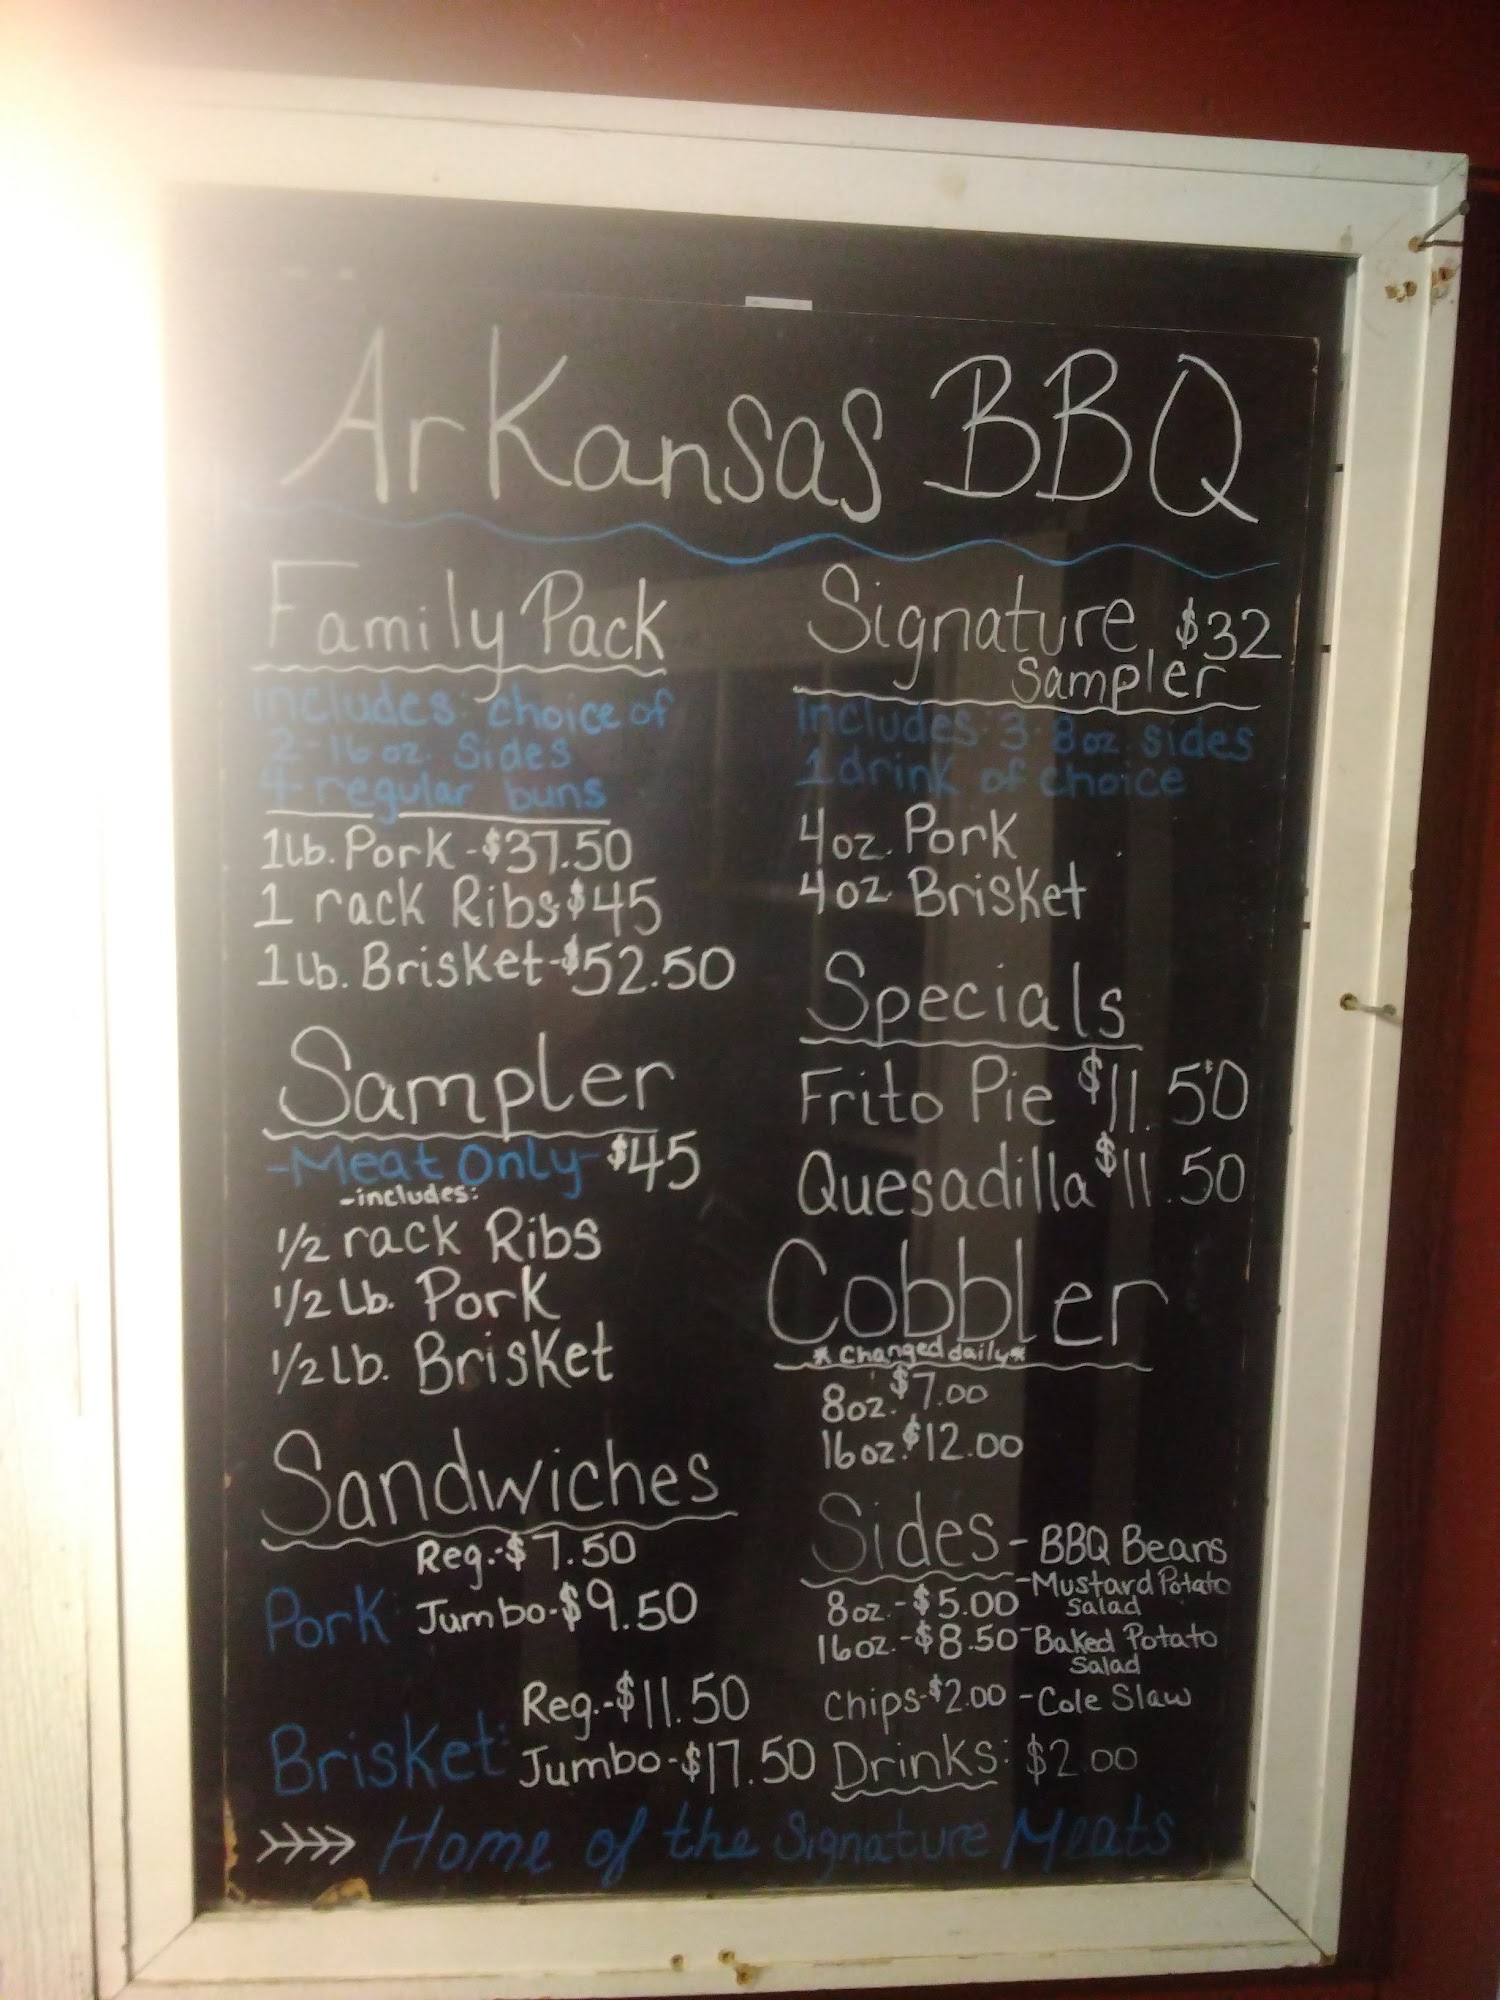 Arkansas BBQ
Family Pack
includes: choice of
2-16oz. Sides
4-regular buns
1lb. Pork-$37.50
1 rack Ribs-$45
1lb. Brisket-$52.50
Sampler
-Meat Only- $45
-includes:
1/2 rack Ribs
1/2 Lb. Pork
1/2 lb. Brisket
Sandwiches
Reg.-$7.50
Pork: Jumbo-$9.50
Reg.-$11.50
Brisket: Jumbo-$17.50
Signature $32
Sampler
includes: 3-8oz. sides
1 drink of choice
4oz. Pork
4oz. Brisket
Specials
Frito Pie $11.50
Quesadilla $11.50
Cobbler
*Changed daily*
8oz. $7.00
16oz. $12.00
Sides - BBQ Beans
8oz.-$5.00 -Mustard Potato
Salad
16oz.-$8.50 -Baked Potato
Salad
Chips-$2.00 -Cole Slaw
Drinks: $2.00
Home of the Signature Meats